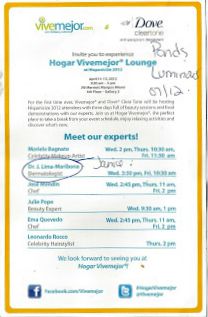 vivemejor.com
Dove
cleartone
Ponds
Luminous
01/12.
Invite you to experience
Hogar Vivemejor® Lounge
at Hispanicize 2012
April 11-13, 2012
For the first time ever, Vivemejor® and Dove® Clear Tone will be hosting
Hispanicize 2012 attendees with three days full of beauty sessions and food
demonstrations with our experts. Join us at Hogar Vivemejor®, the perfect
place to take a break from your event schedule, enjoy relaxing activities and
discover what's new.
Meet our experts!
Mariela Bagnato
Celebrity Makeup Artist
Wed. 2 pm, Thurs. 10:30 am,
Fri. 11:30 am
Dr. J. Lima-Maribona
Dermatologist
Janice?
Wed. 3:30 pm, Fri. 10:30 am
Jose Mendin
Chef
Wed. 2:45 pm, Thurs. 11 am,
Fri. 2 pm
Julie Pope
Beauty Expert
Wed. 9:30 am, 1 pm
Ema Quevedo
Chef
Wed. 2:45 pm, Thurs. 11 am,
Fri. 2 pm
Leonardo Rocco
Celebrity Hairstylist
Thurs. 2 pm
We look forward to seeing you at
Hogar Vivemejor®!
Facebook.com/Vivemejor
#HogarVivemejor
@Vivemejor